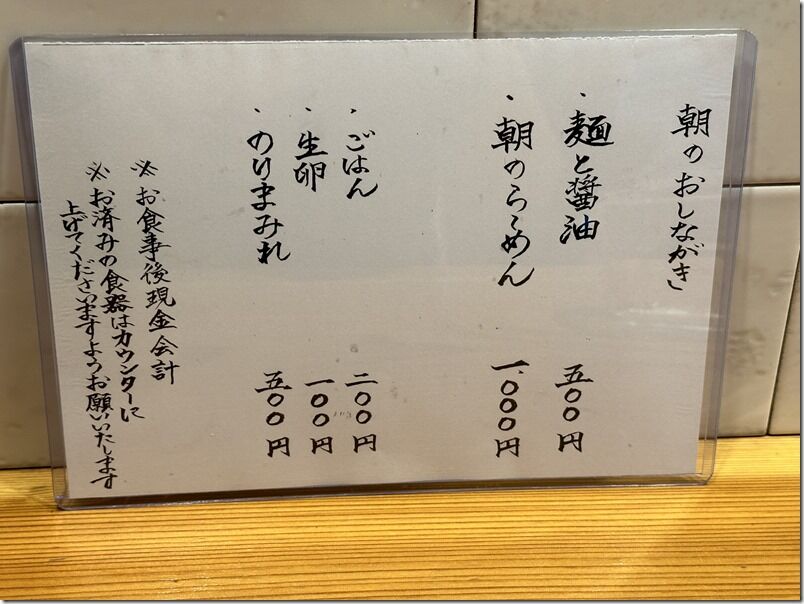 朝のおしながき
・麺と醤油 五〇〇円
・朝のらーめん 一、〇〇〇円
・ごはん 二〇〇円
・生卵 一〇〇円
・のりまみれ 五〇〇円
※お食事後現金会計
※お済みの食器はカウンターに
上げてくださいますようお願いいたします